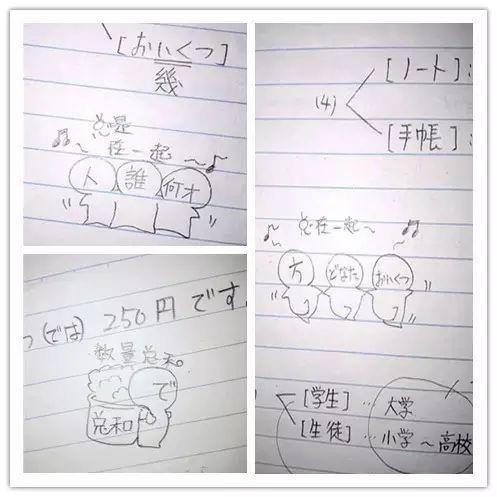 [おいくつ]
幾
总是
在一起
人 誰 何才
(では) 250円です
数量总和。
で
总和
(4)
[ノート]:
[手帳]:
总在一起～
方 どなた おいくつ
[学生]…大学
[生徒]…小学～高校